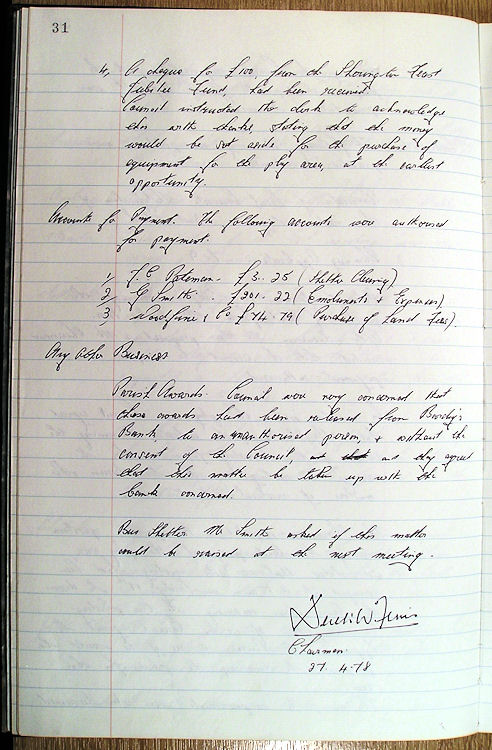 31
4, A cheque for £100, from the Sherington Feast
Jubilee Fund, had been received.
Council instructed the clerk to acknowledge
this with thanks, stating that the money
would be set aside for the purchase of
equipment for the play area, at the earliest
opportunity.
Accounts for Payment. The following accounts were authorised
for payment.
1, F C Bateman. £3.25 (Shelter Cleaning)
2, G Smith. £201.22 (Emoluments & Expenses)
3, & Co £74.79 (Purchase of Land Fees).
Any Other Business
Parish Awards. Council were very concerned that
these awards had been released from Barclays
Bank, to an unauthorised person, & without the
consent of the Council as they agreed
that this matter be taken up with the
bank concerned.
Bus Shelter. Mr Smith asked if this matter
could be revised at the next meeting.
Chairman
27. 4.78